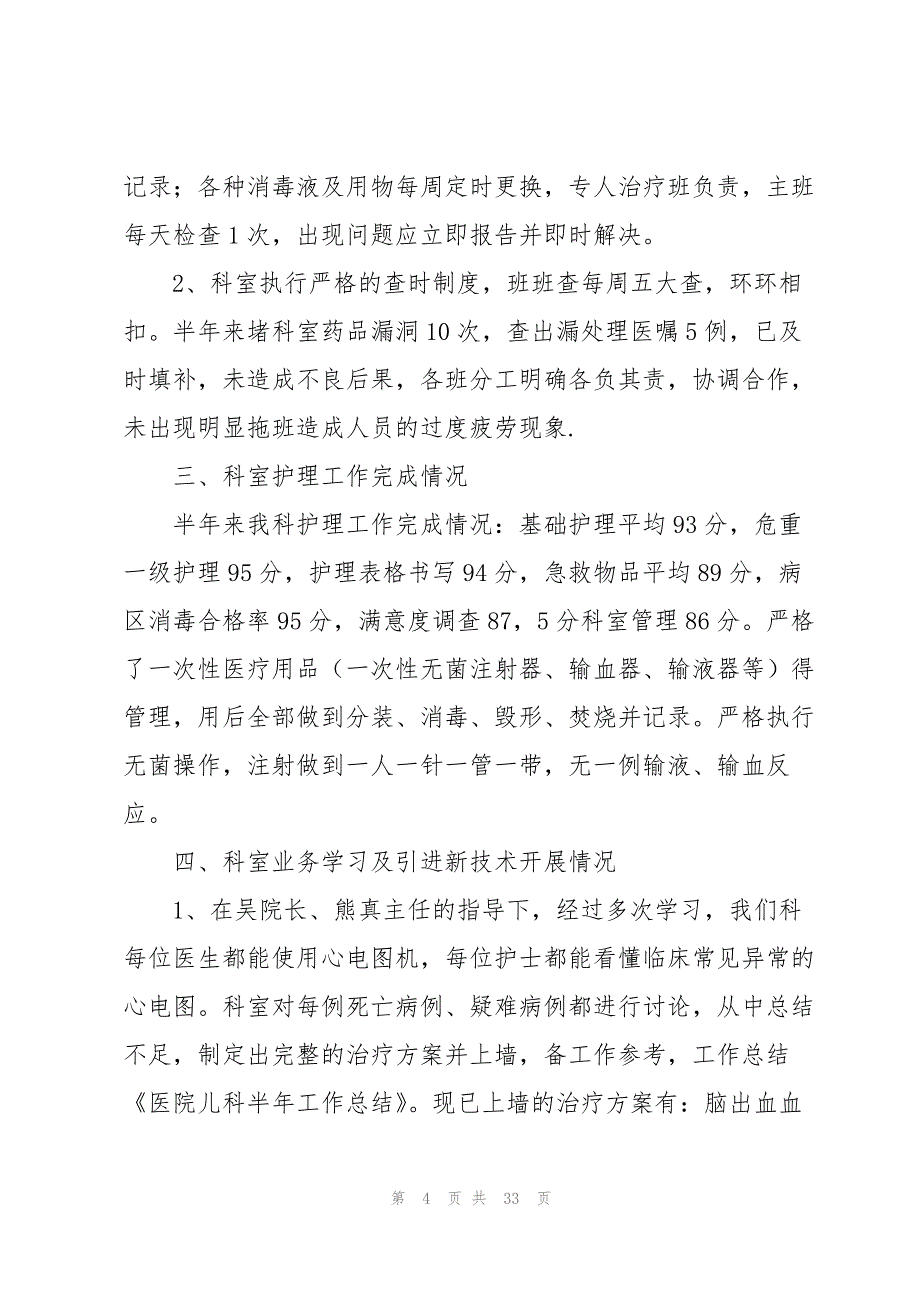 记录；各种消毒液及用物每周定时更换，专人治疗班负责，主班
每天检查1次，出现问题应立即报告并即时解决。
2、科室执行严格的查时制度，班班查每周五大查，环环相
扣。半年来堵科室药品漏洞10次，查出漏处理医嘱5例，已及
时填补，未造成不良后果，各班分工明确各负其责，协调合作，
未出现明显拖班造成人员的过度疲劳现象.
三、科室护理工作完成情况
半年来我科护理工作完成情况：基础护理平均93分，危重
一级护理95分，护理表格书写94分，急救物品平均89分，病
区消毒合格率95分，满意度调查87，5分科室管理86分。严格
了一次性医疗用品（一次性无菌注射器、输血器、输液器等）得
管理，用后全部做到分装、消毒、毁形、焚烧并记录。严格执行
无菌操作，注射做到一人一针一管一带，无一例输液、输血反
应。
四、科室业务学习及引进新技术开展情况
1、在吴院长、熊真主任的指导下，经过多次学习，我们科
每位医生都能使用心电图机，每位护士都能看懂临床常见异常的
心电图。科室对每例死亡病例、疑难病例都进行讨论，从中总结
不足，制定出完整的治疗方案并上墙，备工作参考，工作总结
《医院儿科半年工作总结》。现已上墙的治疗方案有：脑出血血
第 4 页 共 33 页